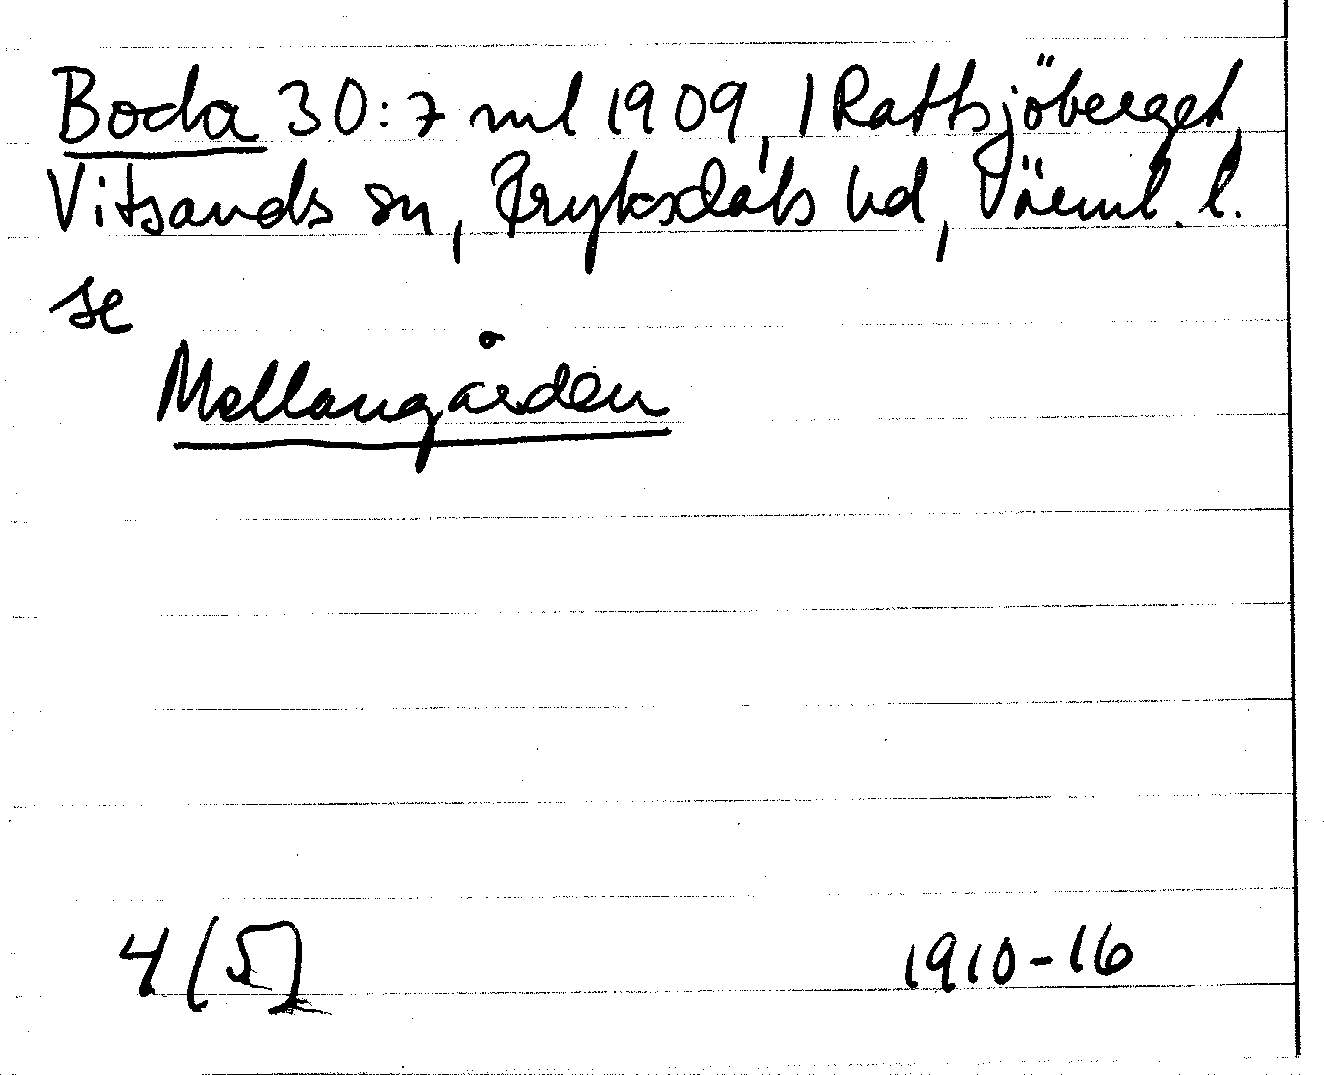 Boda 30:7 ml 1909, 1 Rattsjöberget,
Vitsands sn, Fryksdals hd, Värml. l.
se
Mellangården
4 (5)
1910-16